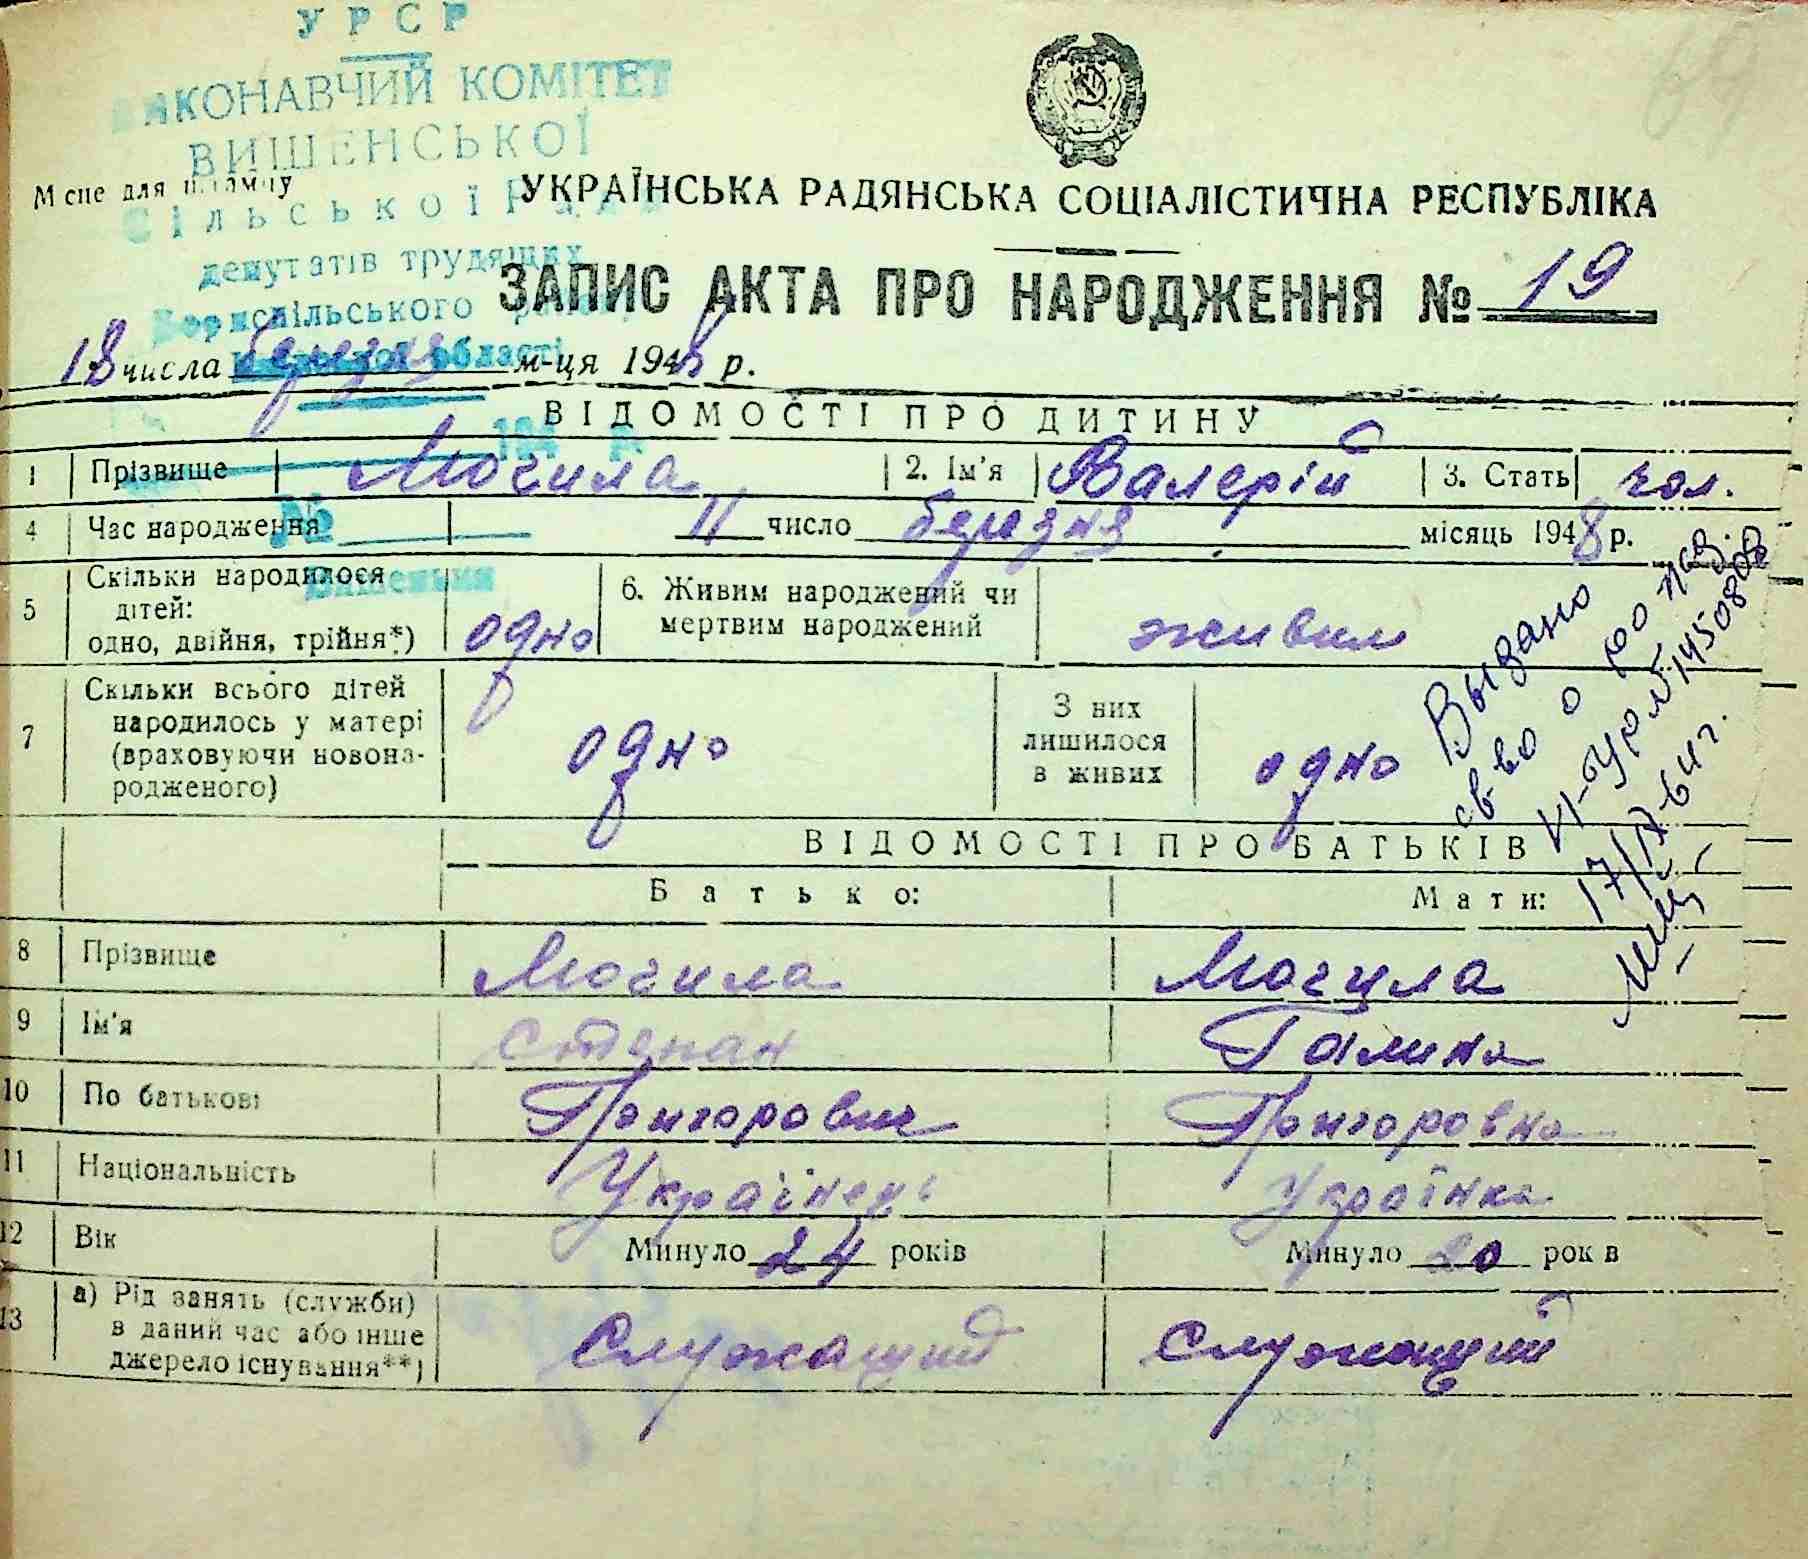 УРСР
ВИКОНАВЧИЙ КОМІТЕТ
ВИШЕНСЬКОЇ
Сільської Ради
депутатів трудящих
Бориспільського району
Київської області
194 р.
№
Вишеньки
Місце для штампу
УКРАЇНСЬКА РАДЯНСЬКА СОЦІАЛІСТИЧНА РЕСПУБЛІКА
ЗАПИС АКТА ПРО НАРОДЖЕННЯ № 19
18 числа березня м-ця 1948 р.
ВІДОМОСТІ ПРО ДИТИНУ
1 Прізвище Могила 2. Ім'я Валерій 3. Стать чол.
4 Час народження 11 число березня місяць 1948 р.
5 Скільки народилося
дітей:
одно, двійня, трійня*) одно
6. Живим народжений чи
мертвим народжений живим
7 Скільки всього дітей
народилось у матері
(враховуючи новона-
родженого) одно
З них
лишилося
в живих одно
Выдано
св-во о рожд.
17/IX-64 г.
ВІДОМОСТІ ПРО БАТЬКІВ
Батько: Мати:
8 Прізвище Могила Могила
9 Ім'я Степан Галина
10 По батькові Григорович Григоровна
11 Національність Українець Українка
12 Вік Минуло 24 років Минуло 20 років
13 а) Рід занять (служби)
в даний час або інше
джерело існування**)
Служащий Служащий